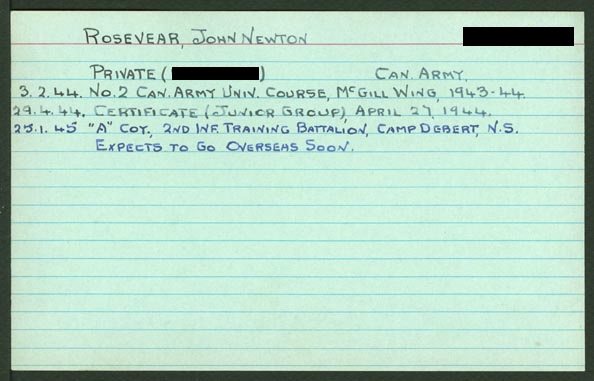 ROSEVEAR, JOHN NEWTON
PRIVATE ( ) CAN. ARMY.
3.2.44. NO.2 CAN. ARMY UNIV. COURSE, McGILL WING, 1943-44.
29.4.44. CERTIFICATE (JUNIOR GROUP), APRIL 27, 1944.
25.1.45 "A" COY., 2ND INF. TRAINING BATTALION, CAMP DEBERT, N.S.
EXPECTS TO GO OVERSEAS SOON.